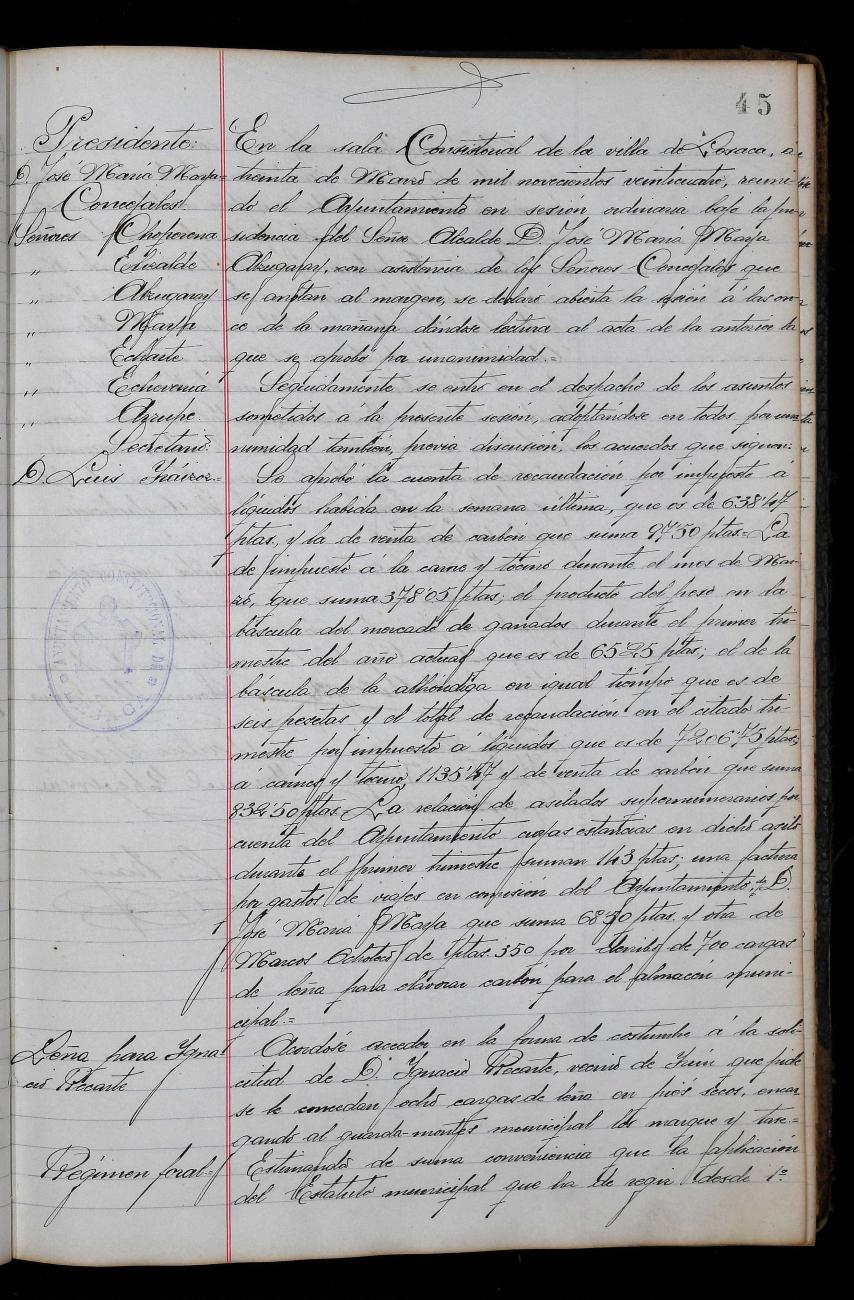 45
Presidente:
D. José María Marfa=
Concejales
Señores Choperena
" Elicalde
" Alzugaray
" Marfa
" Echarte
" Echeverría
" Azrupe.
Secretario:
D. Luis Iráizoz.=
En la sala Consistorial de la villa de Lesaca, a
treinta de Marzo de mil novecientos veinticuatro, reuni-
do el Ayuntamiento en sesión ordinaria bajo la pre-
sidencia del Señor Alcalde D. José María Marfa
Alzugaray, con asistencia de los Señores Concejales que
se anotan al margen, se declaró abierta la sesión á las on-
ce de la mañana dándose lectura al acta de la anterior la
que se aprobó por unanimidad.=
Seguidamente se entró en el despacho de los asuntos
sometidos á la presente sesión, adoptándose en todos por una-
nimidad también, previa discusión, los acuerdos que siguen:
Se aprobó la cuenta de recaudación por impuesto á
líquidos habida en la semana última, que es de 638'47
ptas., y la de venta de carbón que suma 97'50 ptas.= La
de impuesto á la carne y tocino durante el mes de Mar-
zo, que suma 378'05 ptas; el producto del peso en la
báscula del mercado de ganados durante el primer tri-
mestre del año actual que es de 65'25 ptas; el de la
báscula de la alhóndiga en igual tiempo que es de
seis pesetas y el total de recaudación en el citado tri-
mestre por impuesto á líquidos que es de 7206'75 ptas;
á carnes y tocino, 1135'47 y de venta de carbón que suma
832'50 ptas. La relación de asilados supernumerarios por
cuenta del Ayuntamiento cuyas estancias en dicho asilo
durante el primer trimestre suman 143 ptas; una factura
por gastos de viajes en comisión del Ayuntamiento, de D.
José María Marfa que suma 68'30 ptas. y otra de
Marcos Ochoteco de ptas. 350 por derribo de 700 cargas
de leña para elavorar carbón para el almacén muni-
cipal.=
Leña para Igna-
cio Recarte
Acordóse acceder en la forma de costumbre á la soli-
citud de D. Ignacio Recarte, vecino de Irún que pide
se le concedan ocho cargas de leña en piés secos, encar-
gando al guarda-montes municipal los marque y tase.=
Régimen foral=
Estimando de suma conveniencia que la aplicación
del Estatuto municipal que ha de regir desde 1º
AYUNTAMIENTO CONSTITUCIONAL DE LESACA